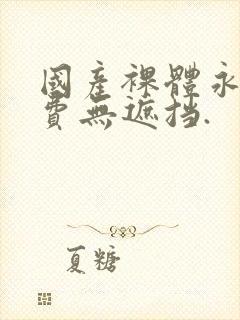 國產裸體永
費無遮挡.
夏糖